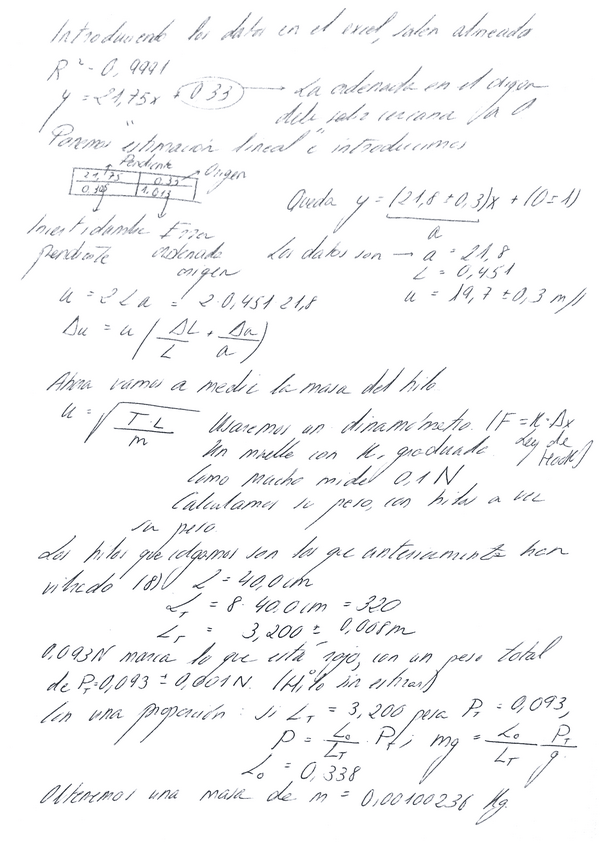 Introduciendo los datos en el excel, salen alineados
R² = 0,9991
y = 21,75x + 0.33 → La ordenada en el origen
debe salir cercana a 0
Ponemos "estimación lineal" e introducimos
Pendiente
21,75 0.33 Origen
1.013
Queda y = (21,8 ± 0,3)x + (0 ± 1)
a
Incertidumbre Error
pendiente ordenada
origen
Los datos son → a = 21,8
L = 0,451
u = 2La = 2·0,451·21,8
u = 19,7 ± 0,3 m/s
Δu = u (ΔL/L + Δa/a)
Ahora vamos a medir la masa del hilo
u = √(T·L/m)
Usaremos un dinamómetro. (F = K·Δx
Ley de
Hooke)
Un muelle con K, graduado.
Como mucho mide 0,1 N
Calculamos su peso, con hilos a ver
su peso.
Los hilos que colgamos son los que anteriormente han
vibrado (8) L = 40,0 cm
L_T = 8·40.0cm = 320
L_T = 3,200 ± 0,008m
0,093N marca lo que está rojo, con un peso total
de P_T = 0,093 ± 0,001N. (Hilo sin estirar)
Con una proporción: si L_T = 3,200 pesa P_T = 0,093,
P = L₀/L_T · P_T; mg = L₀/L_T P_T/g
L₀ = 0,338
Obtenemos una masa de m = 0,00100236 Kg.